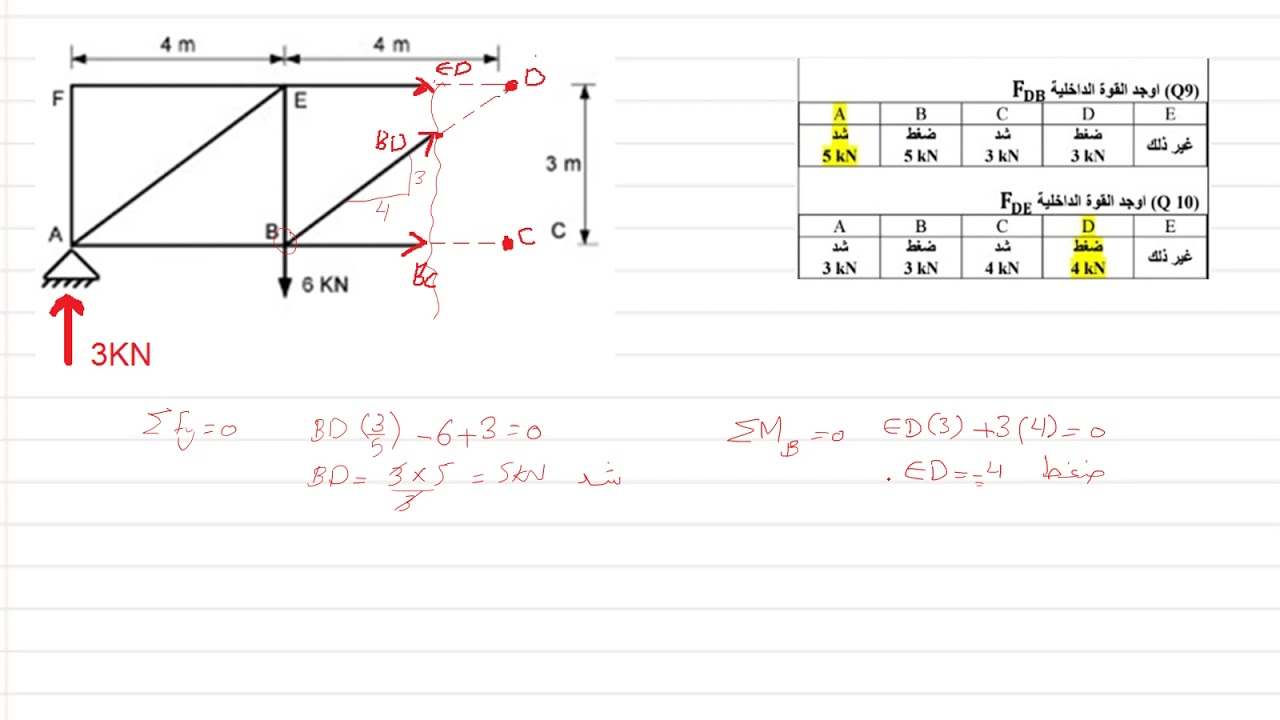 4 m 4 m
F E ED D
BD
3
4
3 m
A B C C
BC
6 KN
3KN
Q9) اوجد القوة الداخلية F_DB)
A B C D E
شد ضغط شد ضغط غير ذلك
5 kN 5 kN 3 kN 3 kN
Q 10) اوجد القوة الداخلية F_DE)
A B C D E
شد ضغط شد ضغط غير ذلك
3 kN 3 kN 4 kN 4 kN
ΣFy=0 BD (3/5) -6+3=0
BD= 3×5/3 = 5kN شد
ΣM_B=0 ED(3)+3(4)=0
. ED=-4 ضغط